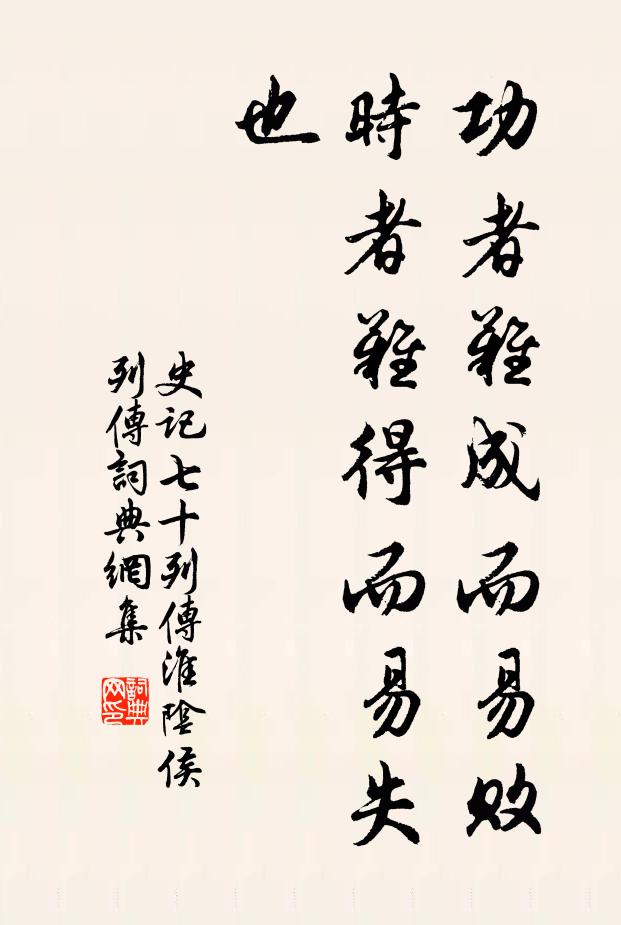 功者難成而易敗
時者難得而易失
也
史記七十列傳淮陰侯
列傳詞典網集
詞典网印